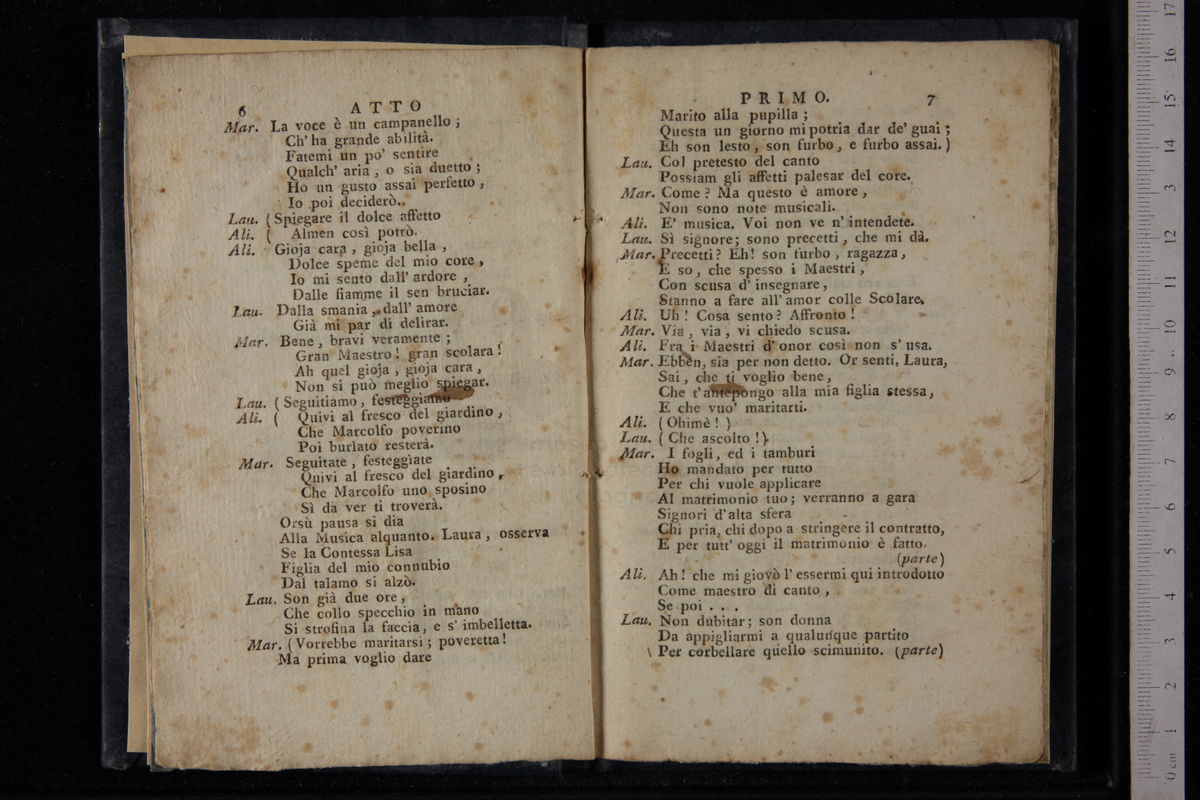 6 ATTO
Mar. La voce è un campanello ;
Ch' ha grande abilità.
Fatemi un po' sentire
Qualch' aria , o sia duetto ;
Ho un gusto assai perfetto ,
Io poi deciderò.
Lau. ( Spiegare il dolce affetto
Ali. ( Almen così potrò.
Ali. Gioja cara , gioja bella ,
Dolce speme del mio core ,
Io mi sento dall' ardore ,
Dalle fiamme il sen bruciar.
Lau. Dalla smania , dall' amore
Già mi par di delirar.
Mar. Bene , bravi veramente ;
Gran Maestro ! gran scolara !
Ah quel gioja , gioja cara ,
Non si può meglio spiegar.
Lau. ( Seguitiamo , festeggiamo
Ali. ( Quivi al fresco del giardino ,
Che Marcolfo poverino
Poi burlato resterà.
Mar. Seguitate , festeggiate
Quivi al fresco del giardino ,
Che Marcolfo uno sposino
Sì da ver ti troverà.
Orsù pausa si dia
Alla Musica alquanto. Laura , osserva
Se la Contessa Lisa
Figlia del mio connubio
Dal talamo si alzò.
Lau. Son già due ore ,
Che collo specchio in mano
Si strofina la faccia, e s' imbelletta.
Mar. ( Vorrebbe maritarsi ; poveretta !
Ma prima voglio dare
PRIMO. 7
Marito alla pupilla ;
Questa un giorno mi potria dar de' guai ;
Eh son lesto , son furbo , e furbo assai. )
Lau. Col pretesto del canto
Possiam gli affetti palesar del core.
Mar. Come ? Ma questo è amore ,
Non sono note musicali.
Ali. E' musica. Voi non ve n' intendete.
Lau. Sì signore; sono precetti , che mi dà.
Mar. Precetti ? Eh! son furbo , ragazza ,
E so , che spesso i Maestri ,
Con scusa d' insegnare ,
Stanno a fare all' amor colle Scolare.
Ali. Uh ! Cosa sento ? Affronto !
Mar. Via , via , vi chiedo scusa.
Ali. Fra i Maestri d' onor così non s' usa.
Mar. Ebben, sia per non detto. Or senti, Laura,
Sai , che ti voglio bene ,
Che t' antepongo alla mia figlia stessa ,
E che vuo' maritarti.
Ali. ( Ohimè ! )
Lau. ( Che ascolto ! )
Mar. I fogli , ed i tamburi
Ho mandato per tutto
Per chi vuole applicare
Al matrimonio tuo ; verranno a gara
Signori d' alta sfera
Chi pria, chi dopo a stringere il contratto,
E per tutt' oggi il matrimonio è fatto.
(parte)
Ali. Ah ! che mi giovò l' essermi qui introdotto
Come maestro di canto ,
Se poi . . .
Lau. Non dubitar ; son donna
Da appigliarmi a qualunque partito
Per corbellare quello scimunito. (parte)
0 cm 1 2 3 4 5 6 7 8 9 10 11 12 3 14 15 16 17